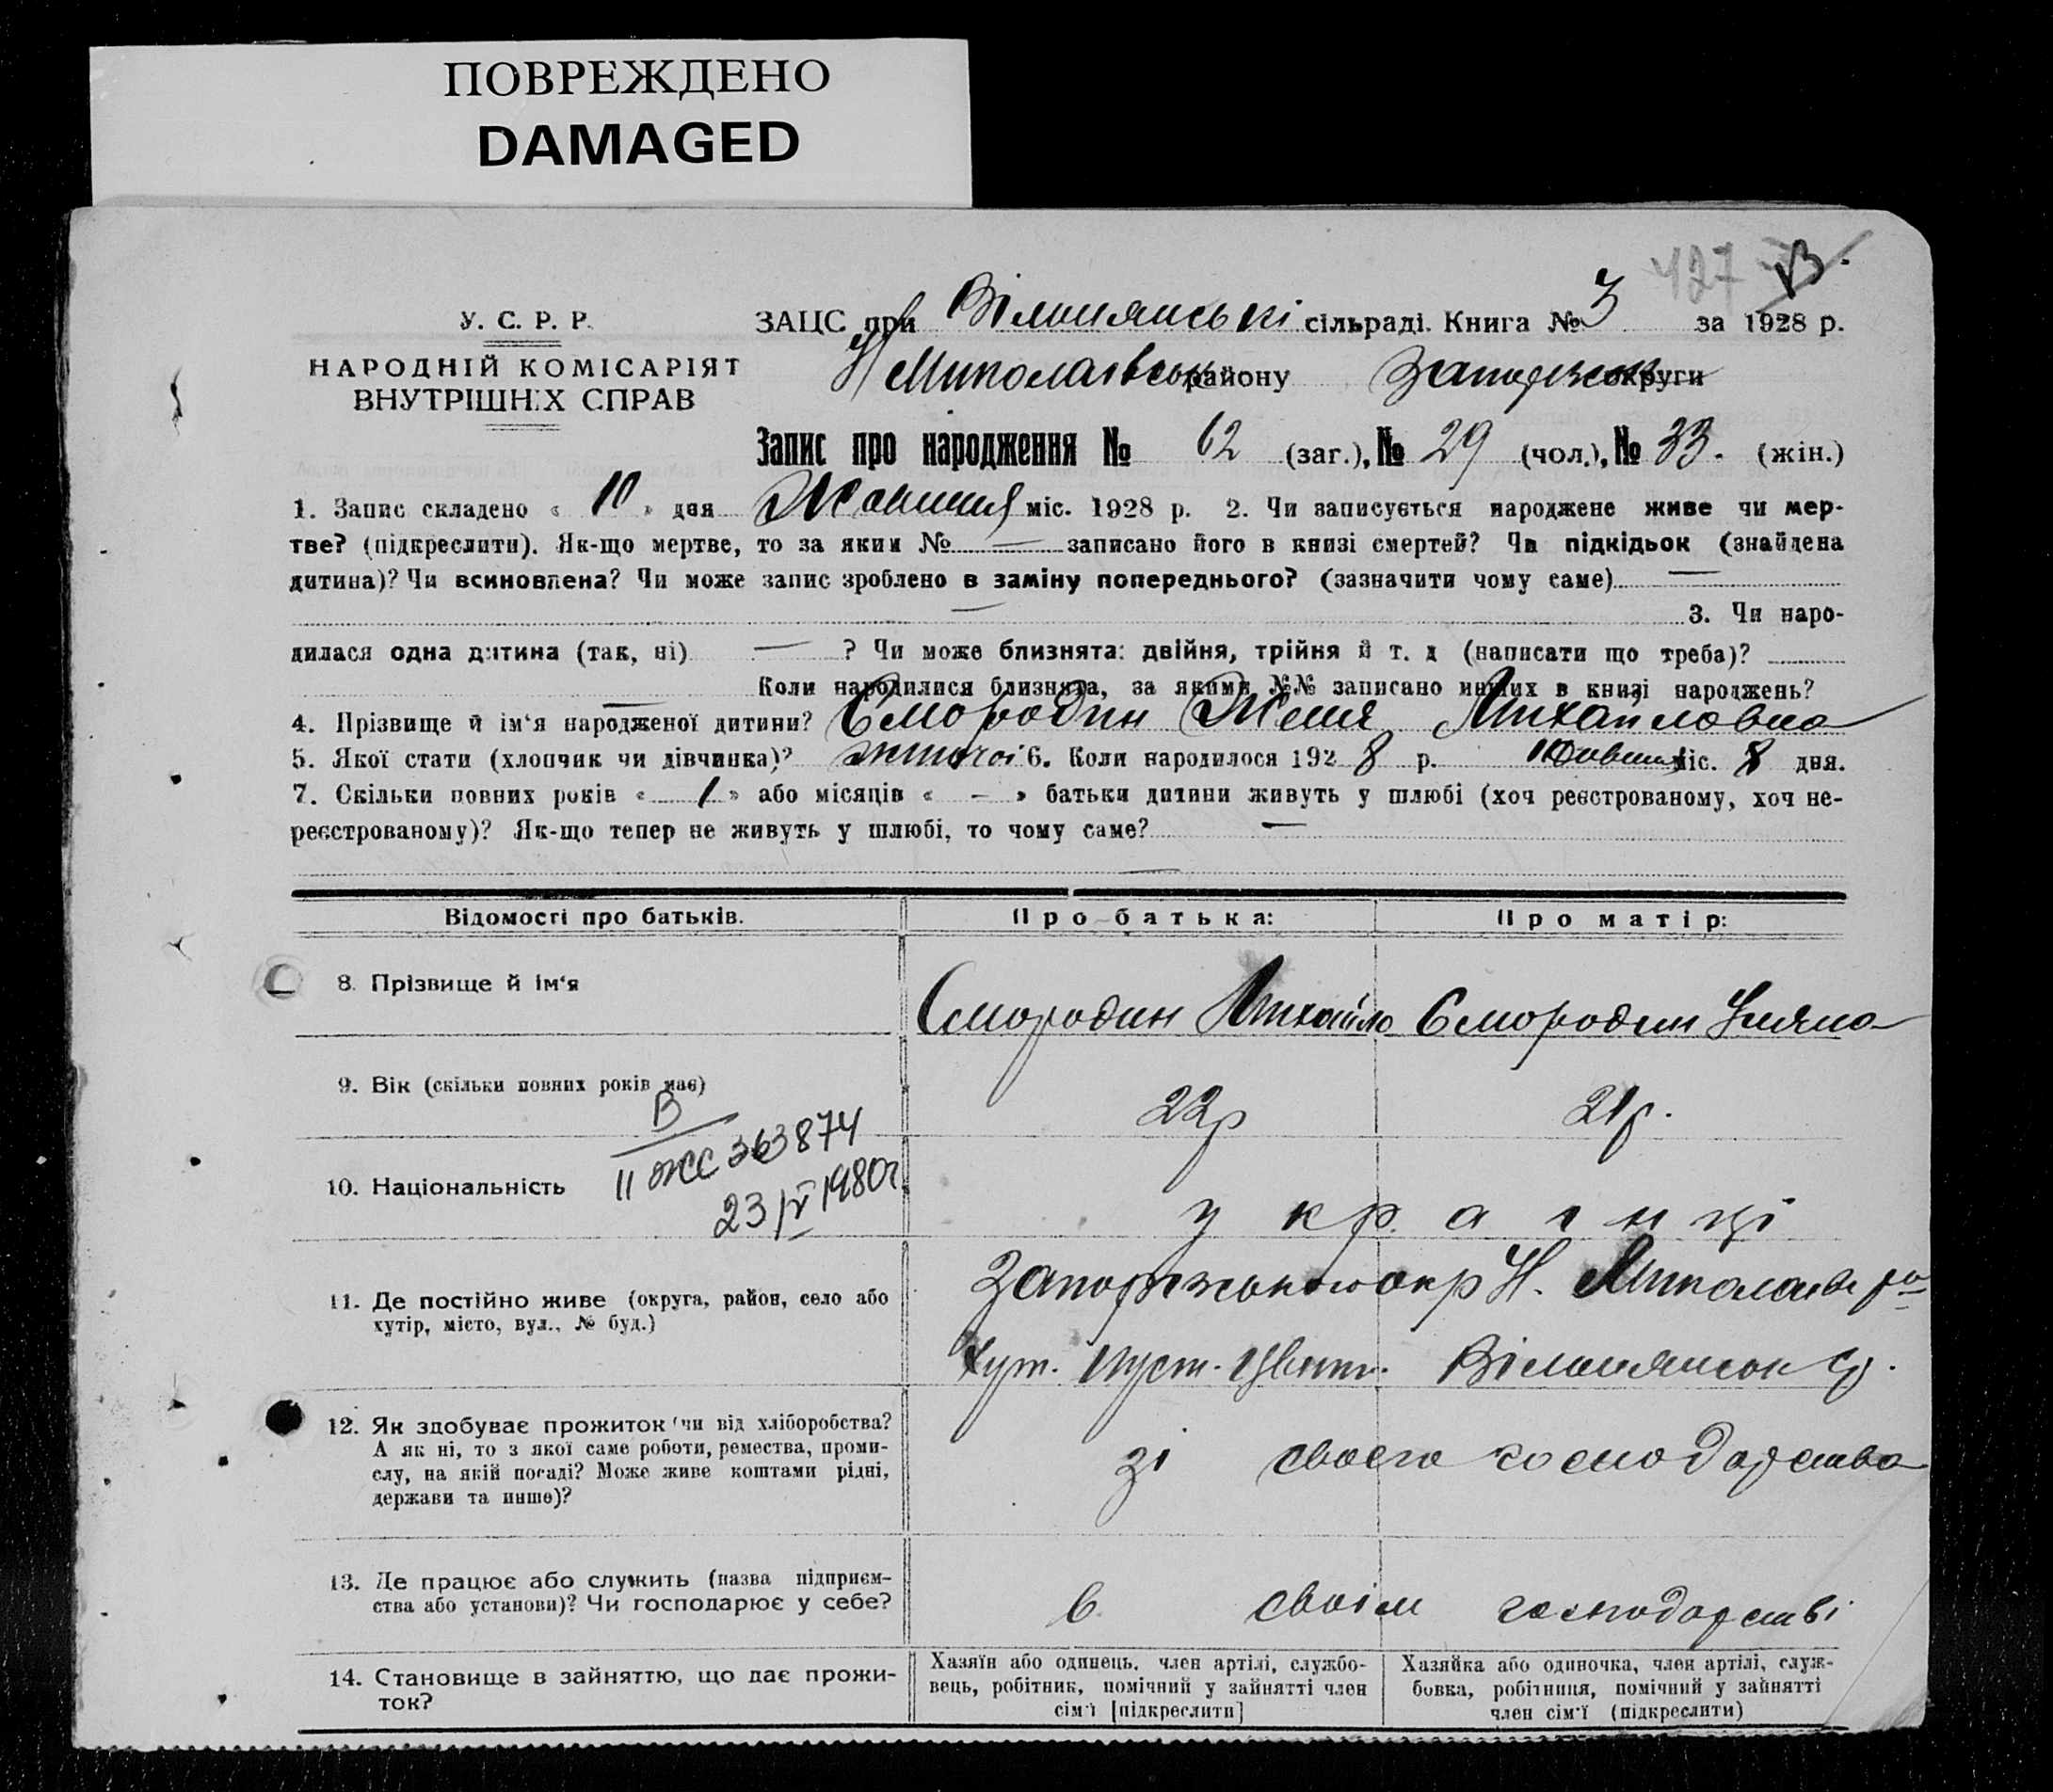 ПОВРЕЖДЕНО
DAMAGED
427
У. С. Р. Р.
НАРОДНІЙ КОМІСАРІЯТ
ВНУТРІШНІХ СПРАВ
ЗАЦС при Вільнянській сільраді. Книга № 3 за 1928 р.
Н Миколаївськ району Запорізьк округи
Запис про народження № 62 (заг.), № 29 (чол.), № 33. (жін.)
1. Запис складено « 10 » дня Жовтня міс. 1928 р. 2. Чи записується народжене живе чи мер-
тве? (підкреслити). Як-що мертве, то за яким № — записано його в книзі смертей? Чи підкідьок (знайдена
дитина)? Чи всиновлена? Чи може запис зроблено в заміну попереднього? (зазначити чому саме) —
— 3. Чи наро-
дилася одна дитина (так, ні) — ? Чи може близнята: двійня, трійня й т. д (написати що треба)?
Коли народилися близнята, за якими №№ записано инших в книзі народжень?
4. Прізвище й ім'я народженої дитини? Смородин Женя Михайловна
5. Якої стати (хлопчик чи дівчинка)? жіночої 6. Коли народилося 1928 р. Жовтня міс. 8 дня.
7. Скільки повних років « 1 » або місяців « - » батьки дитини живуть у шлюбі (хоч реєстрованому, хоч не-
реєстрованому)? Як-що тепер не живуть у шлюбі, то чому саме? —
—
Відомості про батьків. Про батька: Про матір:
8. Прізвище й ім'я Смородин Михайло Смородин Уляна
9. Вік (скільки повних років має) 22р 21р.
В
II ЖС 363874
23/V 1980г.
10. Національність українці
11. Де постійно живе (округа, район, село або
хутір, місто, вул., № буд.)
Запоріжської окр Н. Миколаїв ра
Хут. Пуст. Цвіт. Вільнянськ с/р.
12. Як здобуває прожиток (чи від хліборобства?
А як ні, то з якої саме роботи, ремества, проми-
слу, на якій посаді? Може живе коштами рідні,
держави та инше)?
зі своего господарства
13. Де працює або служить (назва підприєм-
ства або установи)? Чи господарює у себе?
в своїм господарстві
14. Становище в зайняттю, що дає прожи-
ток?
Хазяїн або одинець, член артілі, службо-
вець, робітник, помічний у зайнятті член
сім'ї [підкреслити]
Хазяйка або одиночка, член артілі, служ-
бовка, робітниця, помічний у зайнятті
член сім'ї (підкреслити)